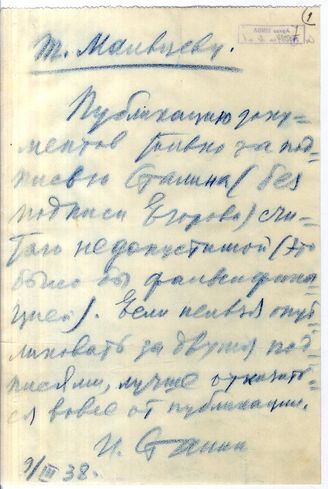 т. Мальцеву.
Публикацию доку-
ментов только за под-
писью Сталина (без
подписи Егорова) счи-
таю недопустимой (это
было бы фальсифика-
цией). Если нельзя опуб
ликовать за двумя под-
писями, лучше отказать-
ся вовсе от публикации.
И. Сталин
9/III 38.